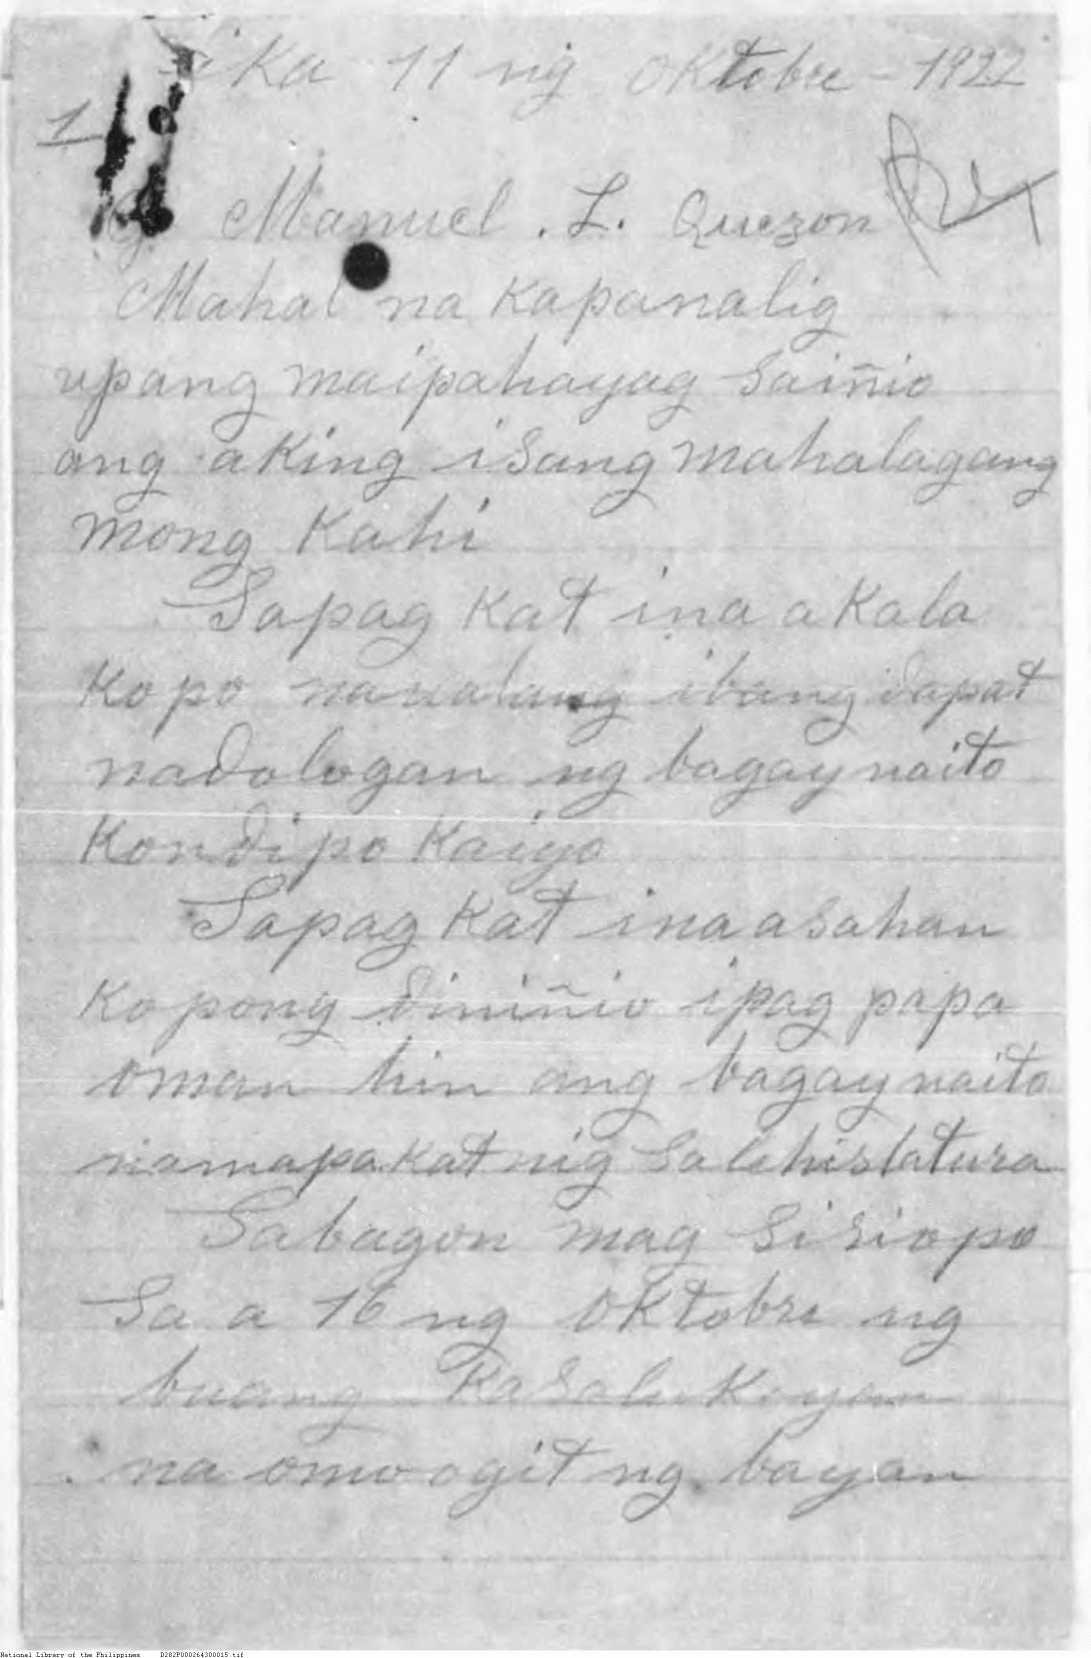 ika 11 ng oktobre - 1922
1
G. Manuel . L. Quezon
Mahal na Kapanalig
upang maipahayag saiñio
ang aking isang mahalagang
mong Kahi
Sapag Kat ina a Kala
Ko po nanalang ibang dapat
nadologan ng bagay naito
Kondipo Kaiyo
Sapag Kat inaasahan
Ko pong diniñio ipag papa
oman hin ang bagay naito
namapakatnig sa lehislatura
Sabagon mag sisiopo
Sa a 16 ng oktobre ng
buang Kasalu Koyan
na omo ogit ng bayan
National Library of the Philippines D282P000264300015.tif